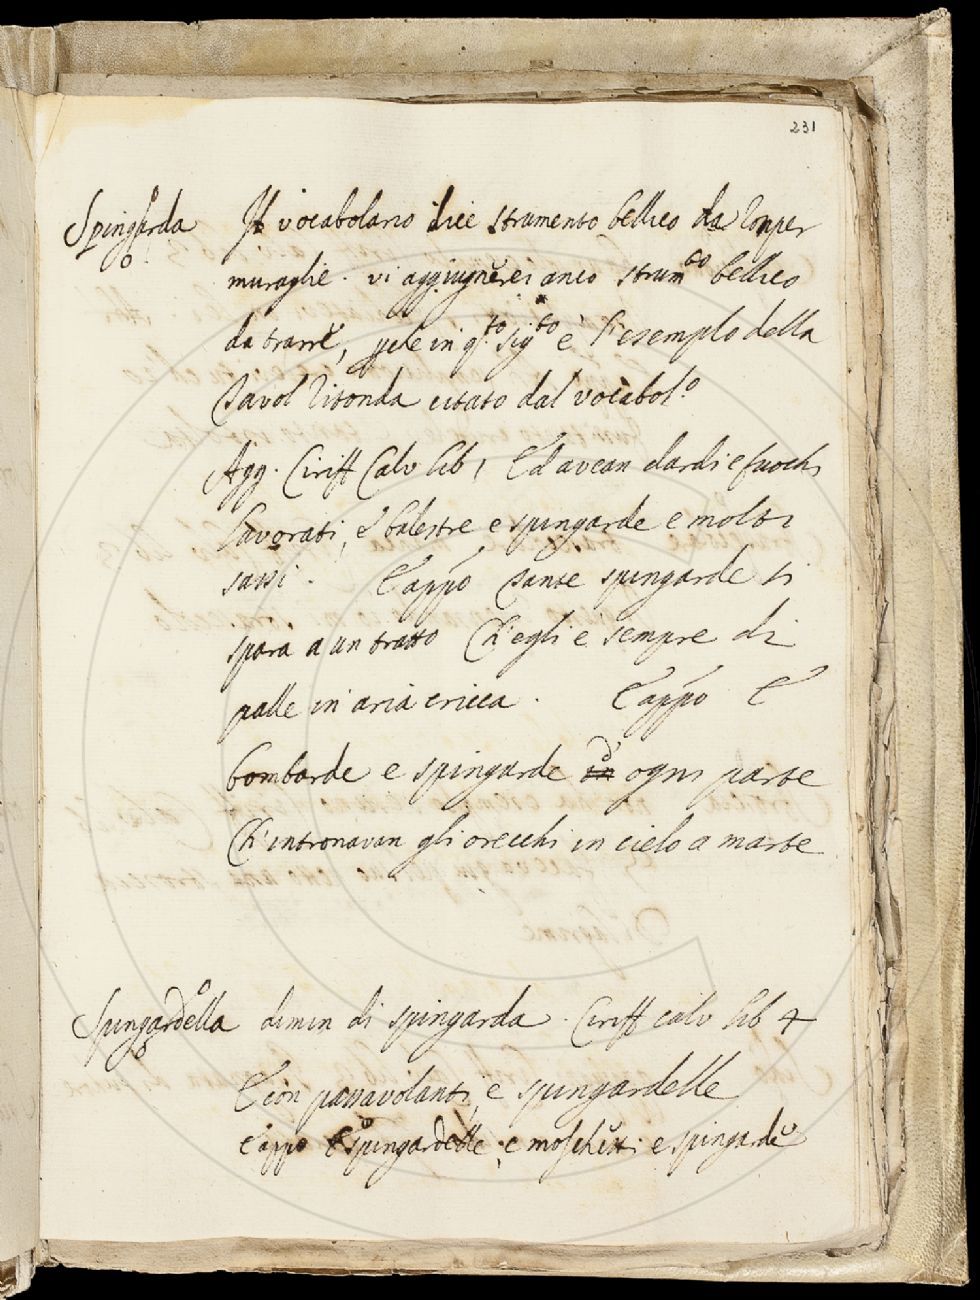 231
Spingarda Il vocabolario dice strumento bellico da romper
muraglie. vi aggiugnerei anco strum.to bellico
da trarre, che in q.to sig.to è l'esemplo della
Tavol Ritonda citato dal vocabol.o
Agg. Ciriff Calv lib 1 Ed avean dardi e fuochi
lavorati, e balestre e spingarde e molti
sassi. E app.o Tante spingarde si
spara a un tratto Ch'egli è sempre di
palle in aria cricca. E app.o E
bombarde e spingarde d' ogni parte
Ch'intronavan gli orecchi in cielo a marte
Spingardella dimin di spingarda. Ciriff calv lib 4
E con passavolanti, e spingardelle
E appo E spingardelle, e moschetti e spingarde